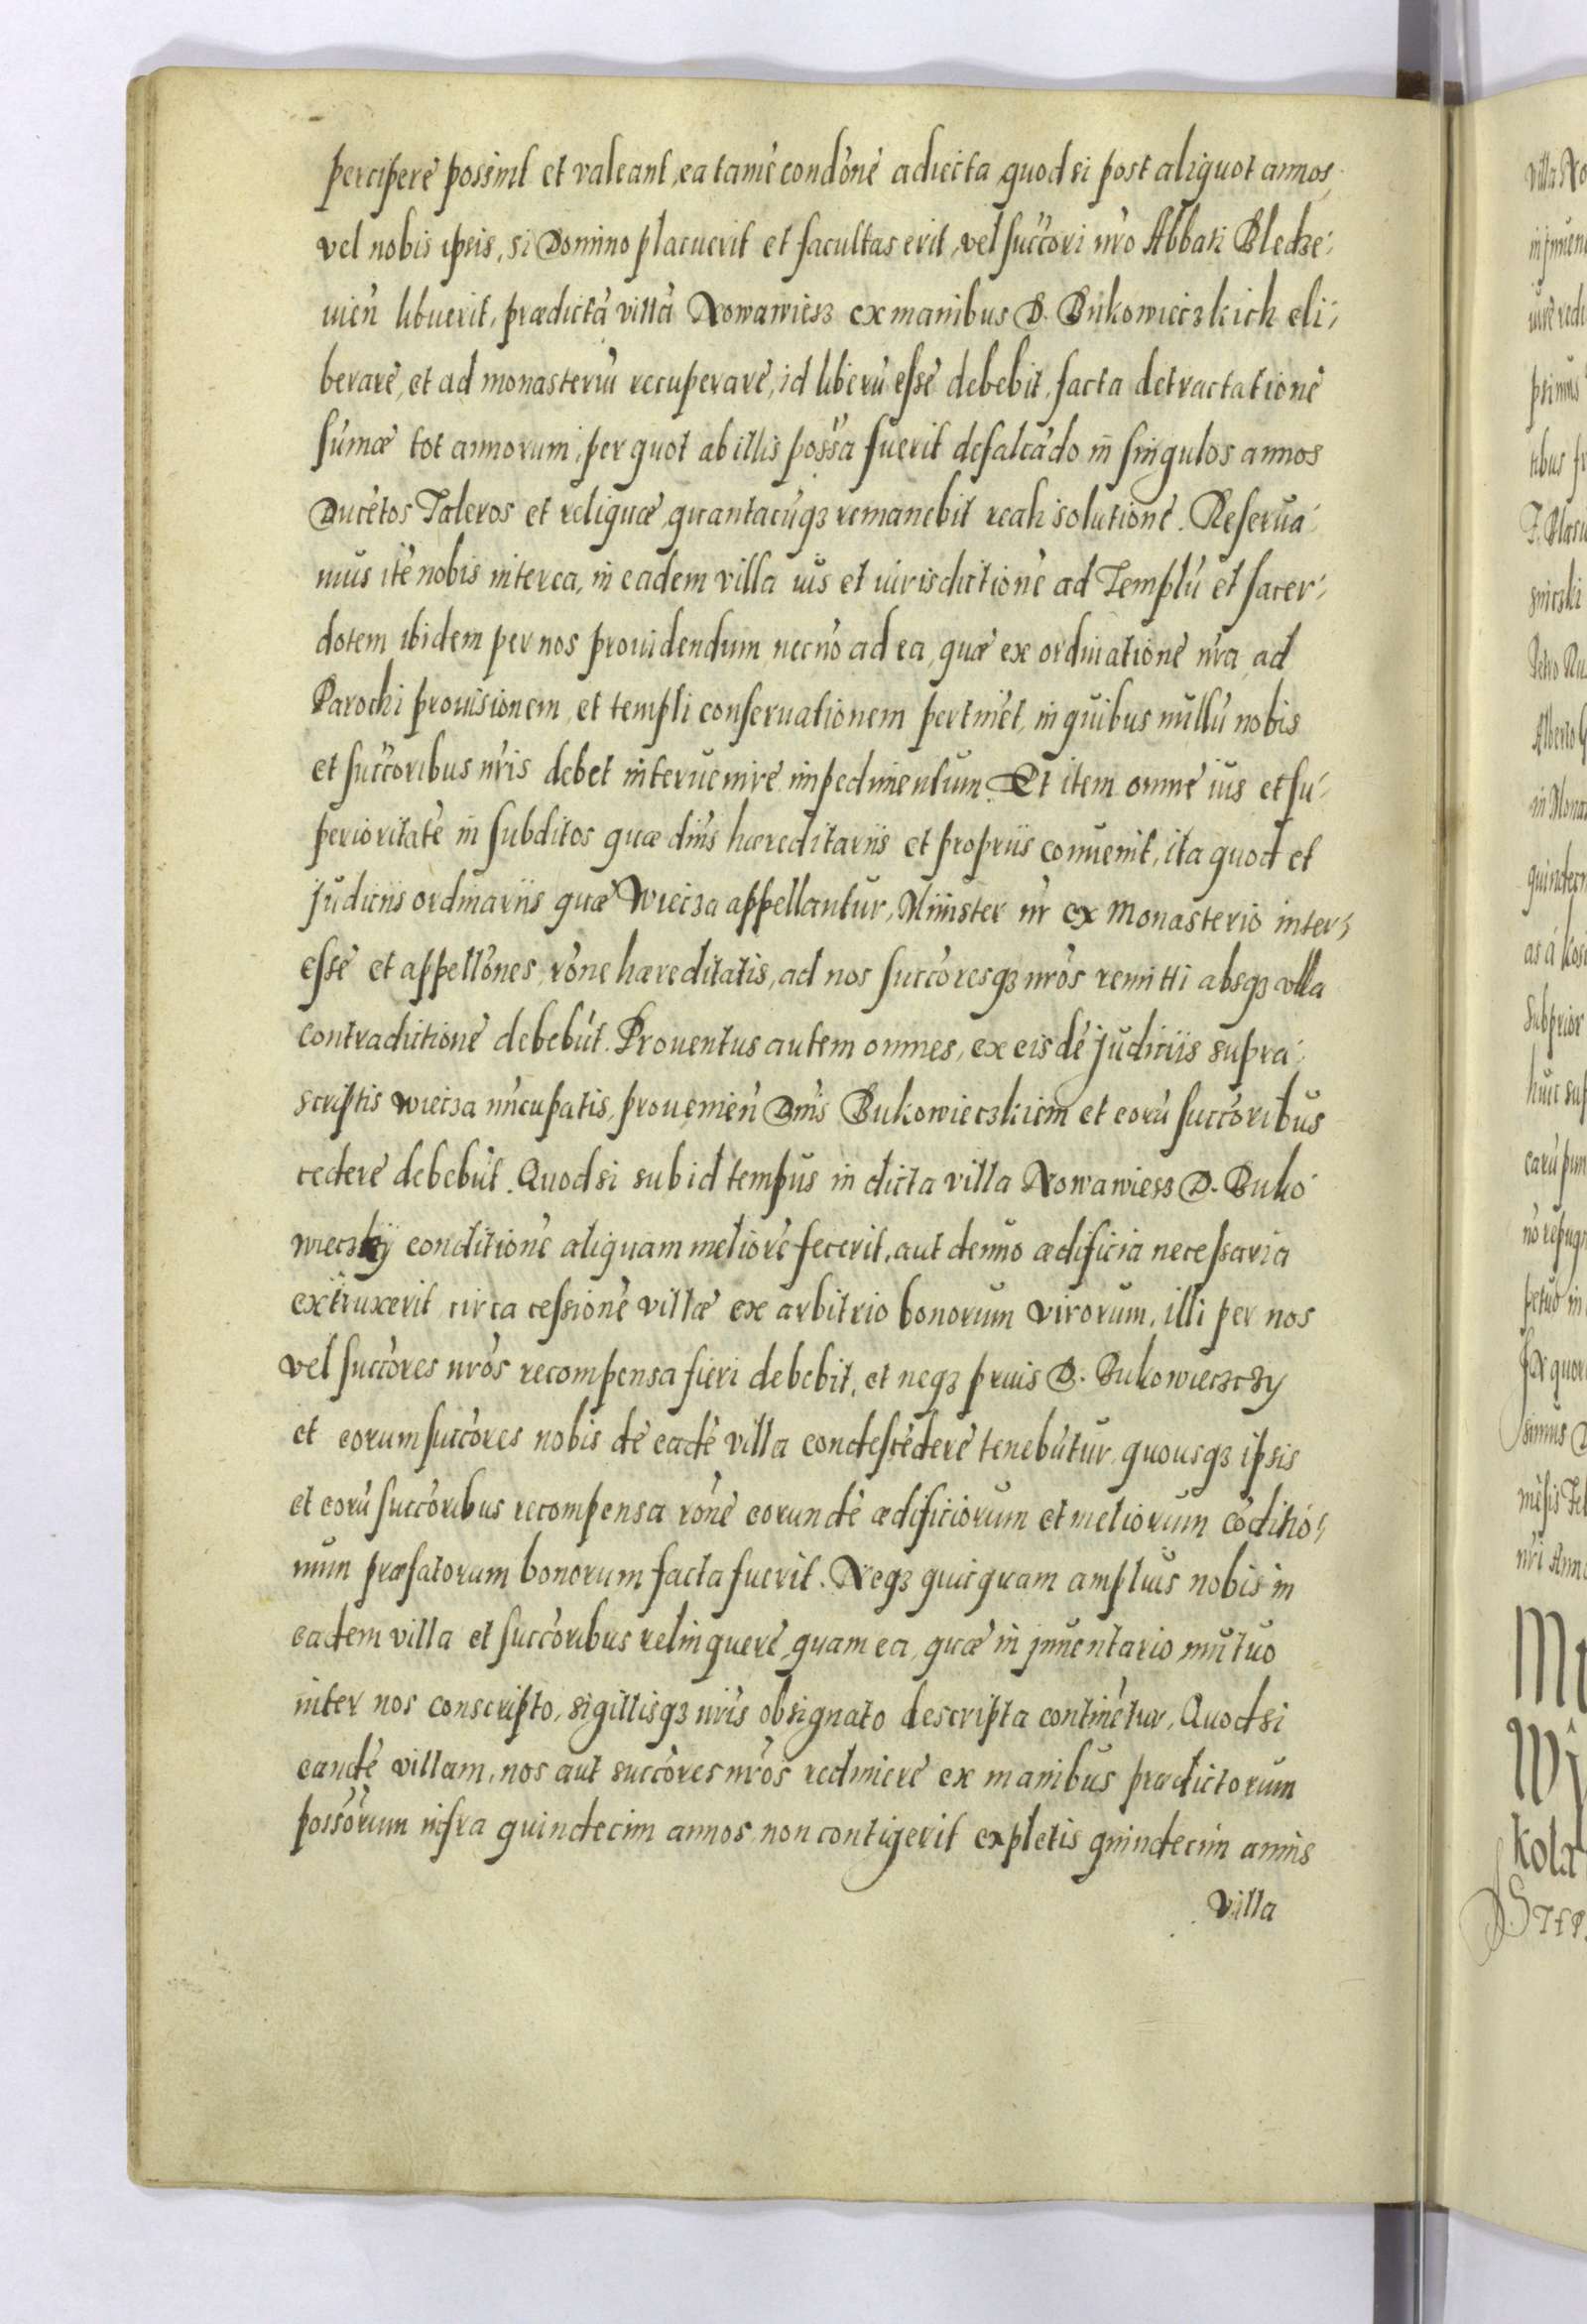 percipere possint et valeant, ea tamē condōne adiecta quod si post aliquot annos,
vel nobis ipsis, si Domino placuerit et facultas erit, vel succōri nr̄o Abbati Bledze-
uien̄ libuerit, prædictā villā Nowawiesz ex manibus D. Bukowieczkich eli-
berare, et ad monasteriū recuperare, id liberū esse debebit, facta detractatione
sum̄æ tot annorum, per quot ab illis possā fuerit defalcādo in singulos annos
Ducētos Taleros et reliquæ, quantacūqꝫ remanebit reali solutione. Reserua-
mus itē nobis interea, in eadem villa ius et iurisdictionē ad Templū et sacer-
dotem ibidem per nos prouidendum necnō ad ea, quæ ex ordinatione nr̄a ad
Parochi prouisionem, et templi conseruationem pertinēt, in quibus nullū nobis
et succōribus nr̄is debet interuenire impedimentum. Et item omne ius et su-
perioritatē in subditos quæ dn̄is hæreditariis et propriis conuenit, ita quod et
judiciis ordinariis quæ Wiecza appellantur, Minister nr̄ ex Monasterio inter-
esse et appellōnes rōne hæreditatis, ad nos succōresqꝫ nr̄os remitti absqꝫ vlla
contradictione debebūt. Prouentus autem omnes, ex eisdē judiciis supra-
scriptis wiecza nūcupatis, prouenien̄ Dn̄is Bukowieczkiem et eorū succōribus
cedere debebūt. Quod si sub id tempus in dicta villa Nowawiesz D. Buko-
wieczky conditionē aliquam meliorē fecerit, aut denuo ædificia necessaria
extruxerit circa cessionē villæ ex arbitrio bonorum virorum, illi per nos
vel succōres nr̄os recompensa fieri debebit, et neqꝫ prius D. Bukowieczczy
et eorum succōres nobis de eadē villa condescēdere tenebūtur quousqꝫ ipsis
et eorū succōribus recompensa rōne eorundē ædificiorum et meliorum cōditio-
num præfatorum bonorum facta fuerit. Neqꝫ quicquam amplius nobis in
eadem villa et succōribus relinquere, quam ea, quæ in jnuentario mutuo
inter nos conscripto, sigillisqꝫ nr̄is obsignato descripta continētur. Quod si
eandē villam, nos aut succōres nr̄os redimere ex manibus prædictorum
possōrum infra quindecim annos non contigerit expletis quindecim annis
villa